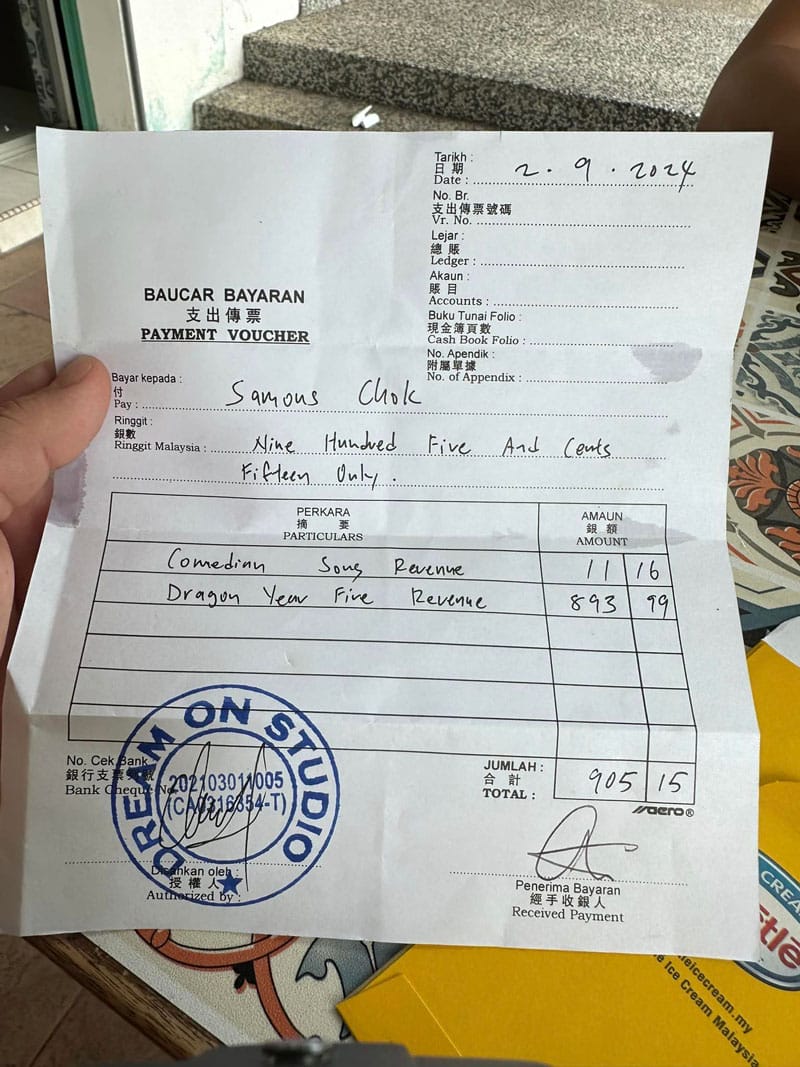 Tarikh :
日期
Date : 2 . 9 . 2024
No. Br.
支出傳票號碼
Vr. No.
Lejar :
總賬
Ledger :
Akaun :
賬目
Accounts :
Buku Tunai Folio :
現金簿頁數
Cash Book Folio :
No. Apendik :
附屬單據
No. of Appendix :
BAUCAR BAYARAN
支出傳票
PAYMENT VOUCHER
Bayar kepada :
付
Pay : Samous Chok
Ringgit :
銀數
Ringgit Malaysia : Nine Hundred Five And Cents
Fifteen Only.
PERKARA AMAUN
摘要 銀額
PARTICULARS AMOUNT
Comedian Song Revenue 11 16
Dragon Year Five Revenue 893 99
JUMLAH :
合計
TOTAL : 905 15
aero®
No. Cek Bank
銀行支票
Bank Cheque No
DREAM ON STUDIO
202103011005
(CA0316354-T)
Disahkan oleh :
授權人
Authorized by :
Penerima Bayaran
經手收銀人
Received Payment
CREA
stlé
leicecream.my
e Ice Cream Malaysia